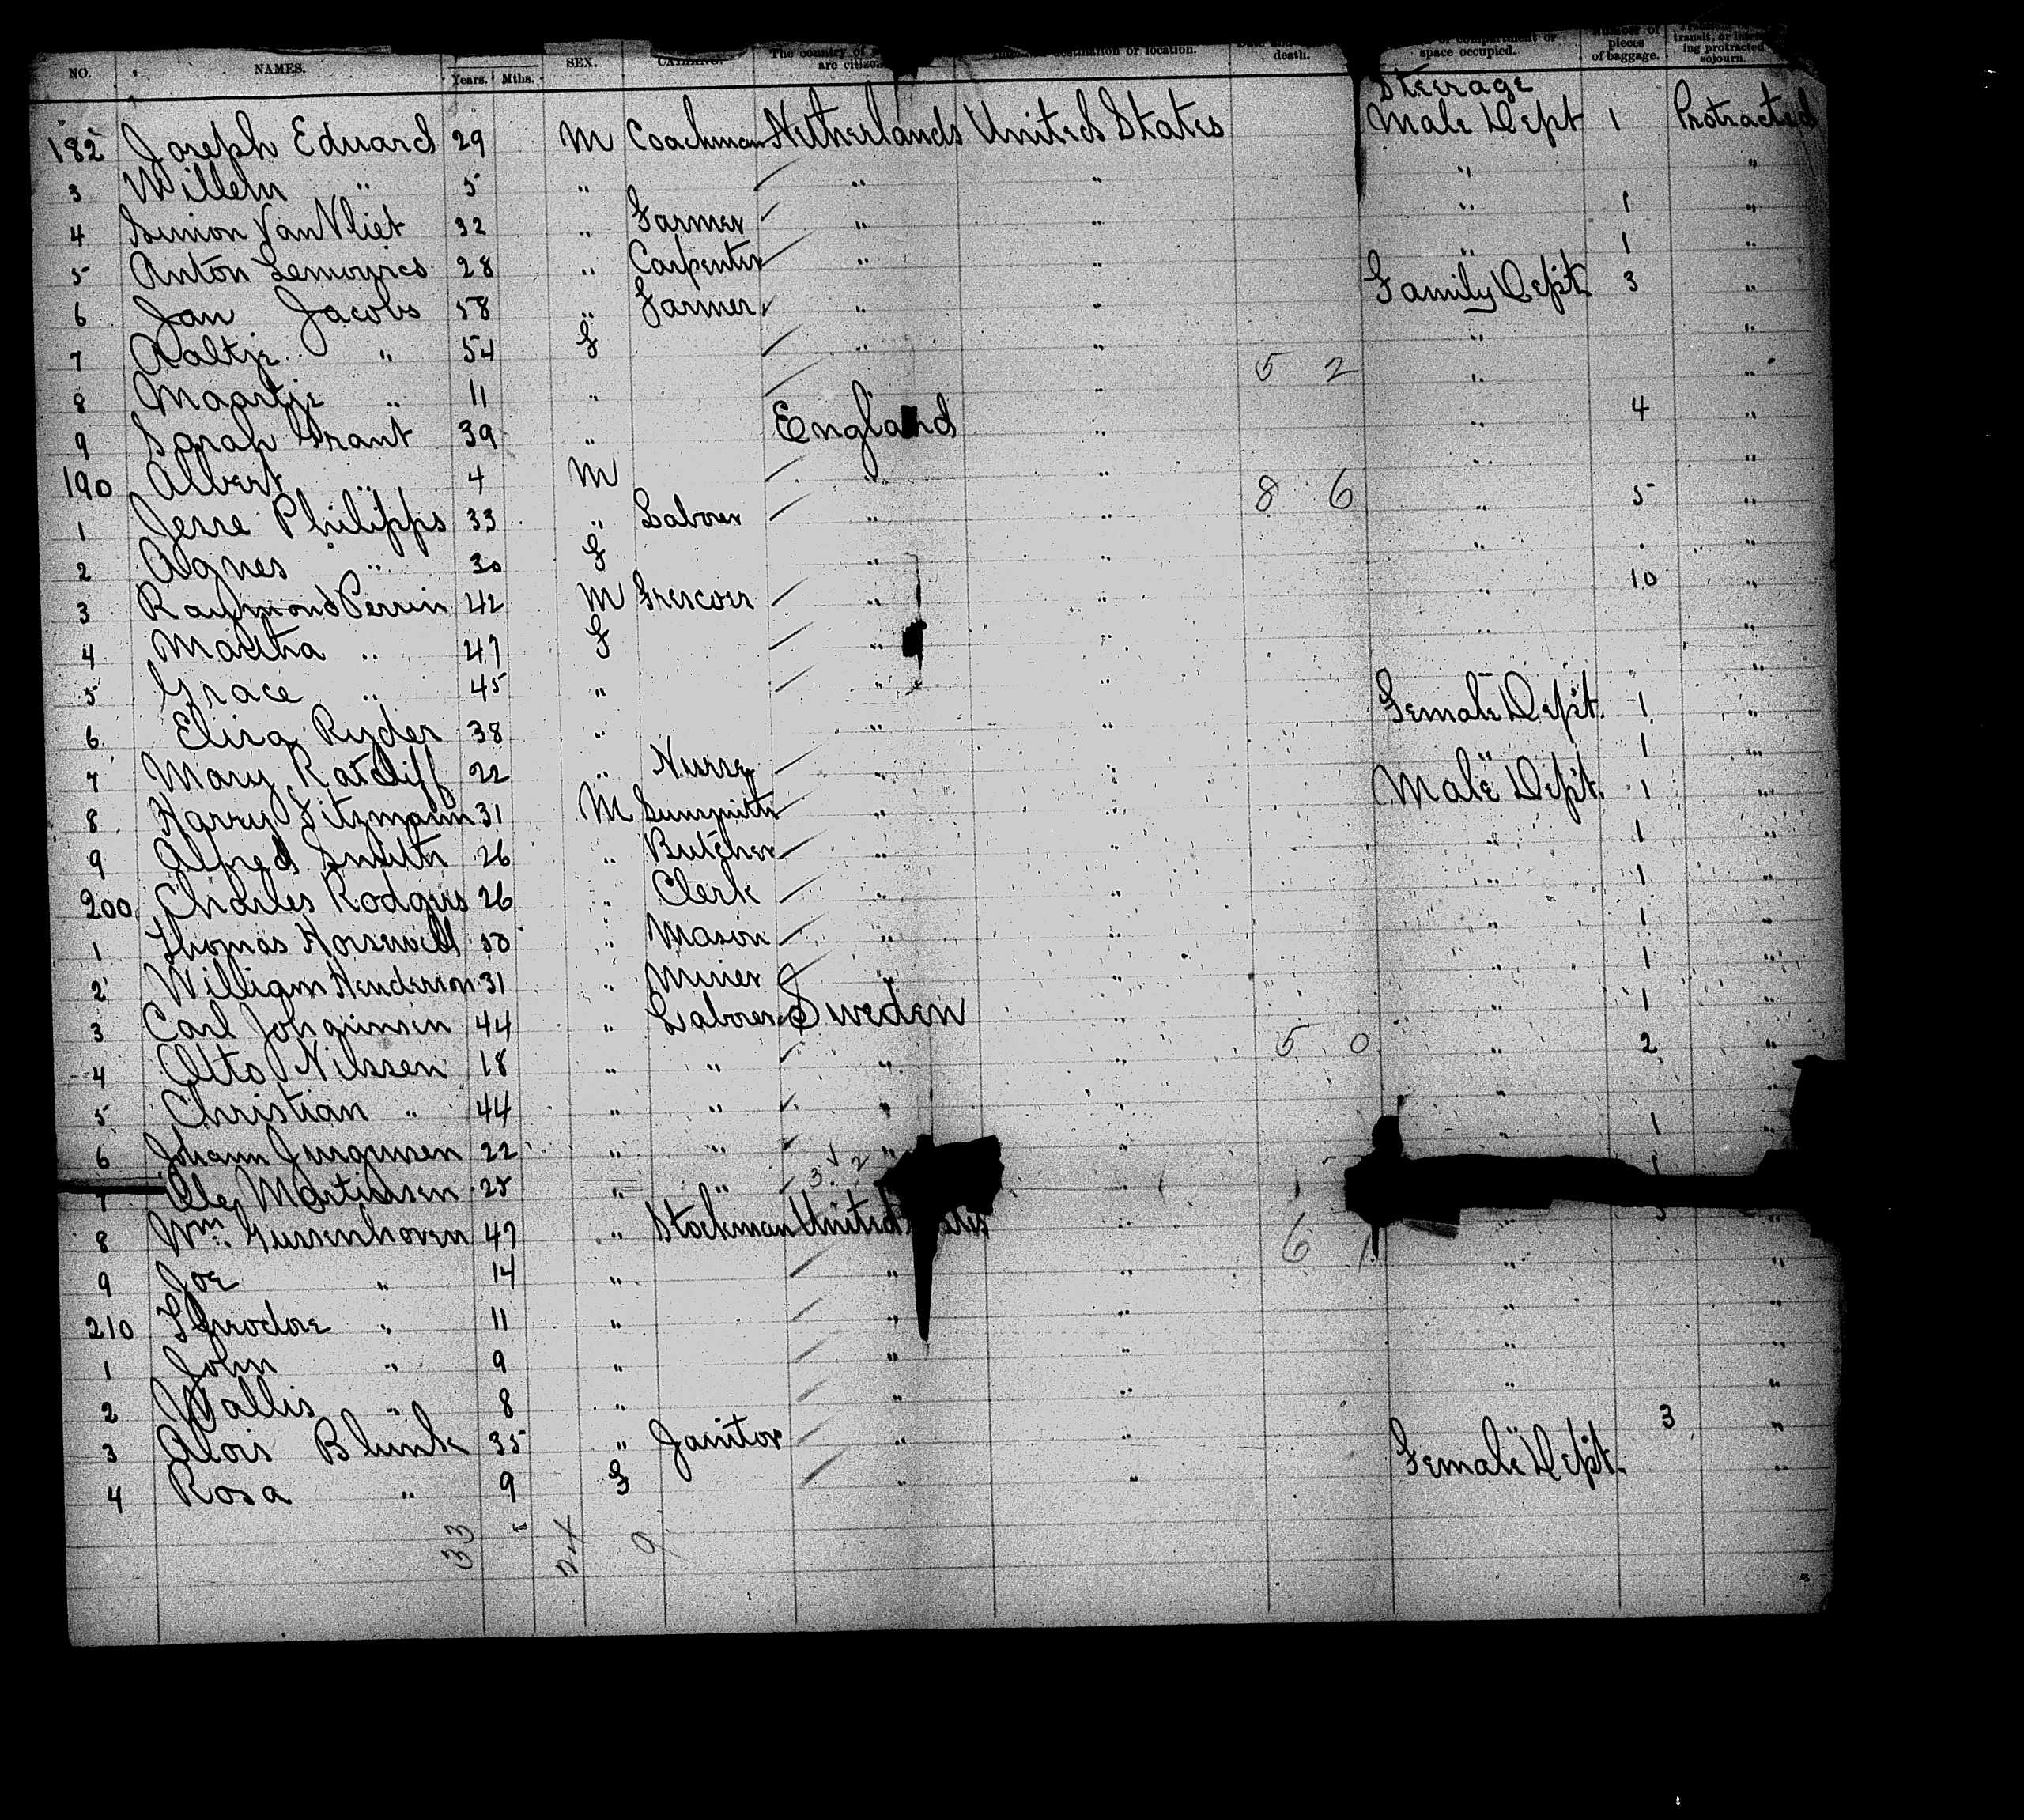 NO. NAMES. Years. Mths. SEX. CALLING. The country of are citizens destination or location. death. compartment or space occupied. Number of pieces of baggage. transit, or in ing protracted sojourn.
Steerage
182 Joseph Eduard 29 M Coachman Netherlands United States Male Dept 1 Protracted
3 Willem " 5 " " " " "
4 Simon Van Vliet 32 " Farmer " " " 1 "
5 Anton 28 " Carpenter " " " 1 "
6 Jan Jacobs 58 " Farmer " " Family Dept. 3 "
7 Aaltje " 54 F " " " "
8 Maartje " 11 " " 5 2 " "
9 Sarah Grant 39 " England " " 4 "
190 Albert " 4 M " " 8 6 " "
1 Jesse Philipps 33 " Laborer " " " 5 "
2 Agnes " 30 F " " " "
3 Raymond Perrin 42 M " " " 10 "
4 Martha " 47 F " " " "
5 Grace " 45 " " " " "
6 Eliza Ryder 38 " " " Female Dept. 1 "
7 Mary Ratcliff 22 " Nurse " " " 1 "
8 Harry Fitzmann 31 M Gunsmith " " Male Dept. 1 "
9 Alfred Smith 26 " Butcher " " " 1 "
200 Charles Rodgers 26 " Clerk " " " 1 "
1 Thomas Horsewell " Mason " " " 1 "
2 William Henderson 31 " Miner " " " 1 "
3 Carl 44 " Laborer Sweden " " 1 "
4 Otto Nilssen 18 " " " " 5 0 " 2 "
5 Christian " 44 " " " " " "
6 Johann Jurgensen 22 " " " " " 1 "
7 Ole Martinsen 25 " " 3 2 "
8 Wm. Gussenhoven 47 " Stockman United States " 6 1 "
9 Joe " 14 " " " " "
210 Theodore " 11 " " " " "
1 John " 9 " " " " "
2 Wallis " 8 " " " " "
3 Alois Blunk 35 " Janitor " " " 3 "
4 Rosa " 9 F " " Female Dept. "
33 24 9